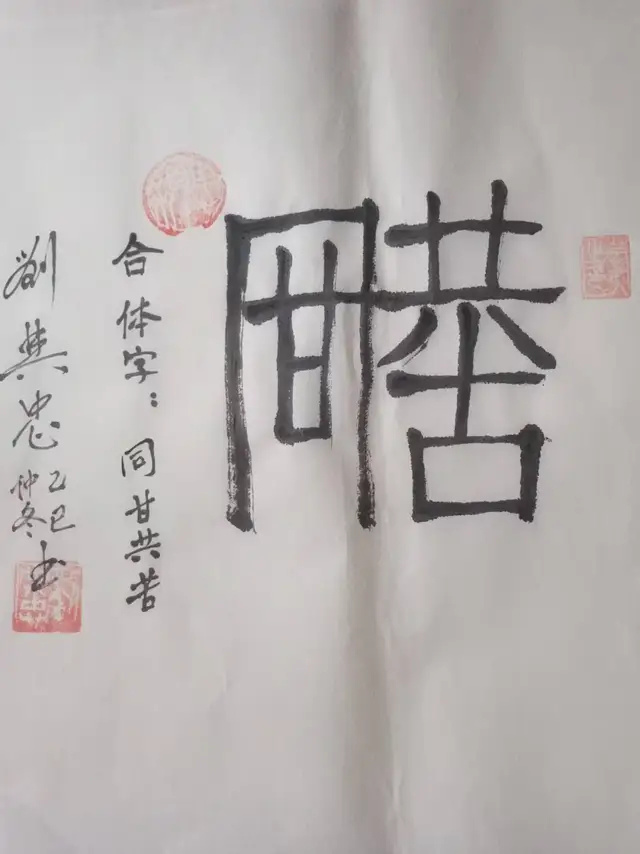 合体字：同甘共苦
刘典忠
乙巳
仲冬
书